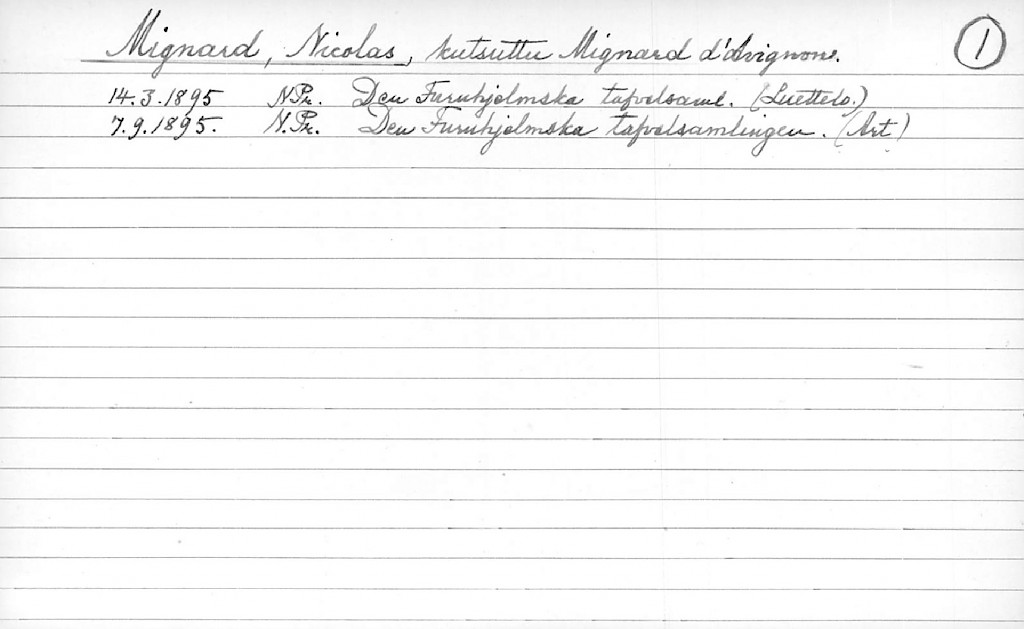 Mignard, Nicolas, kutsuttu Mignard d'Avignon. 1
14.3.1895 N.Pr. Den Furuhjelmska tafvelsaml. (Luettelo.)
7.9.1895. N.Pr. Den Furuhjelmska tafvelsamlingen. (Art)